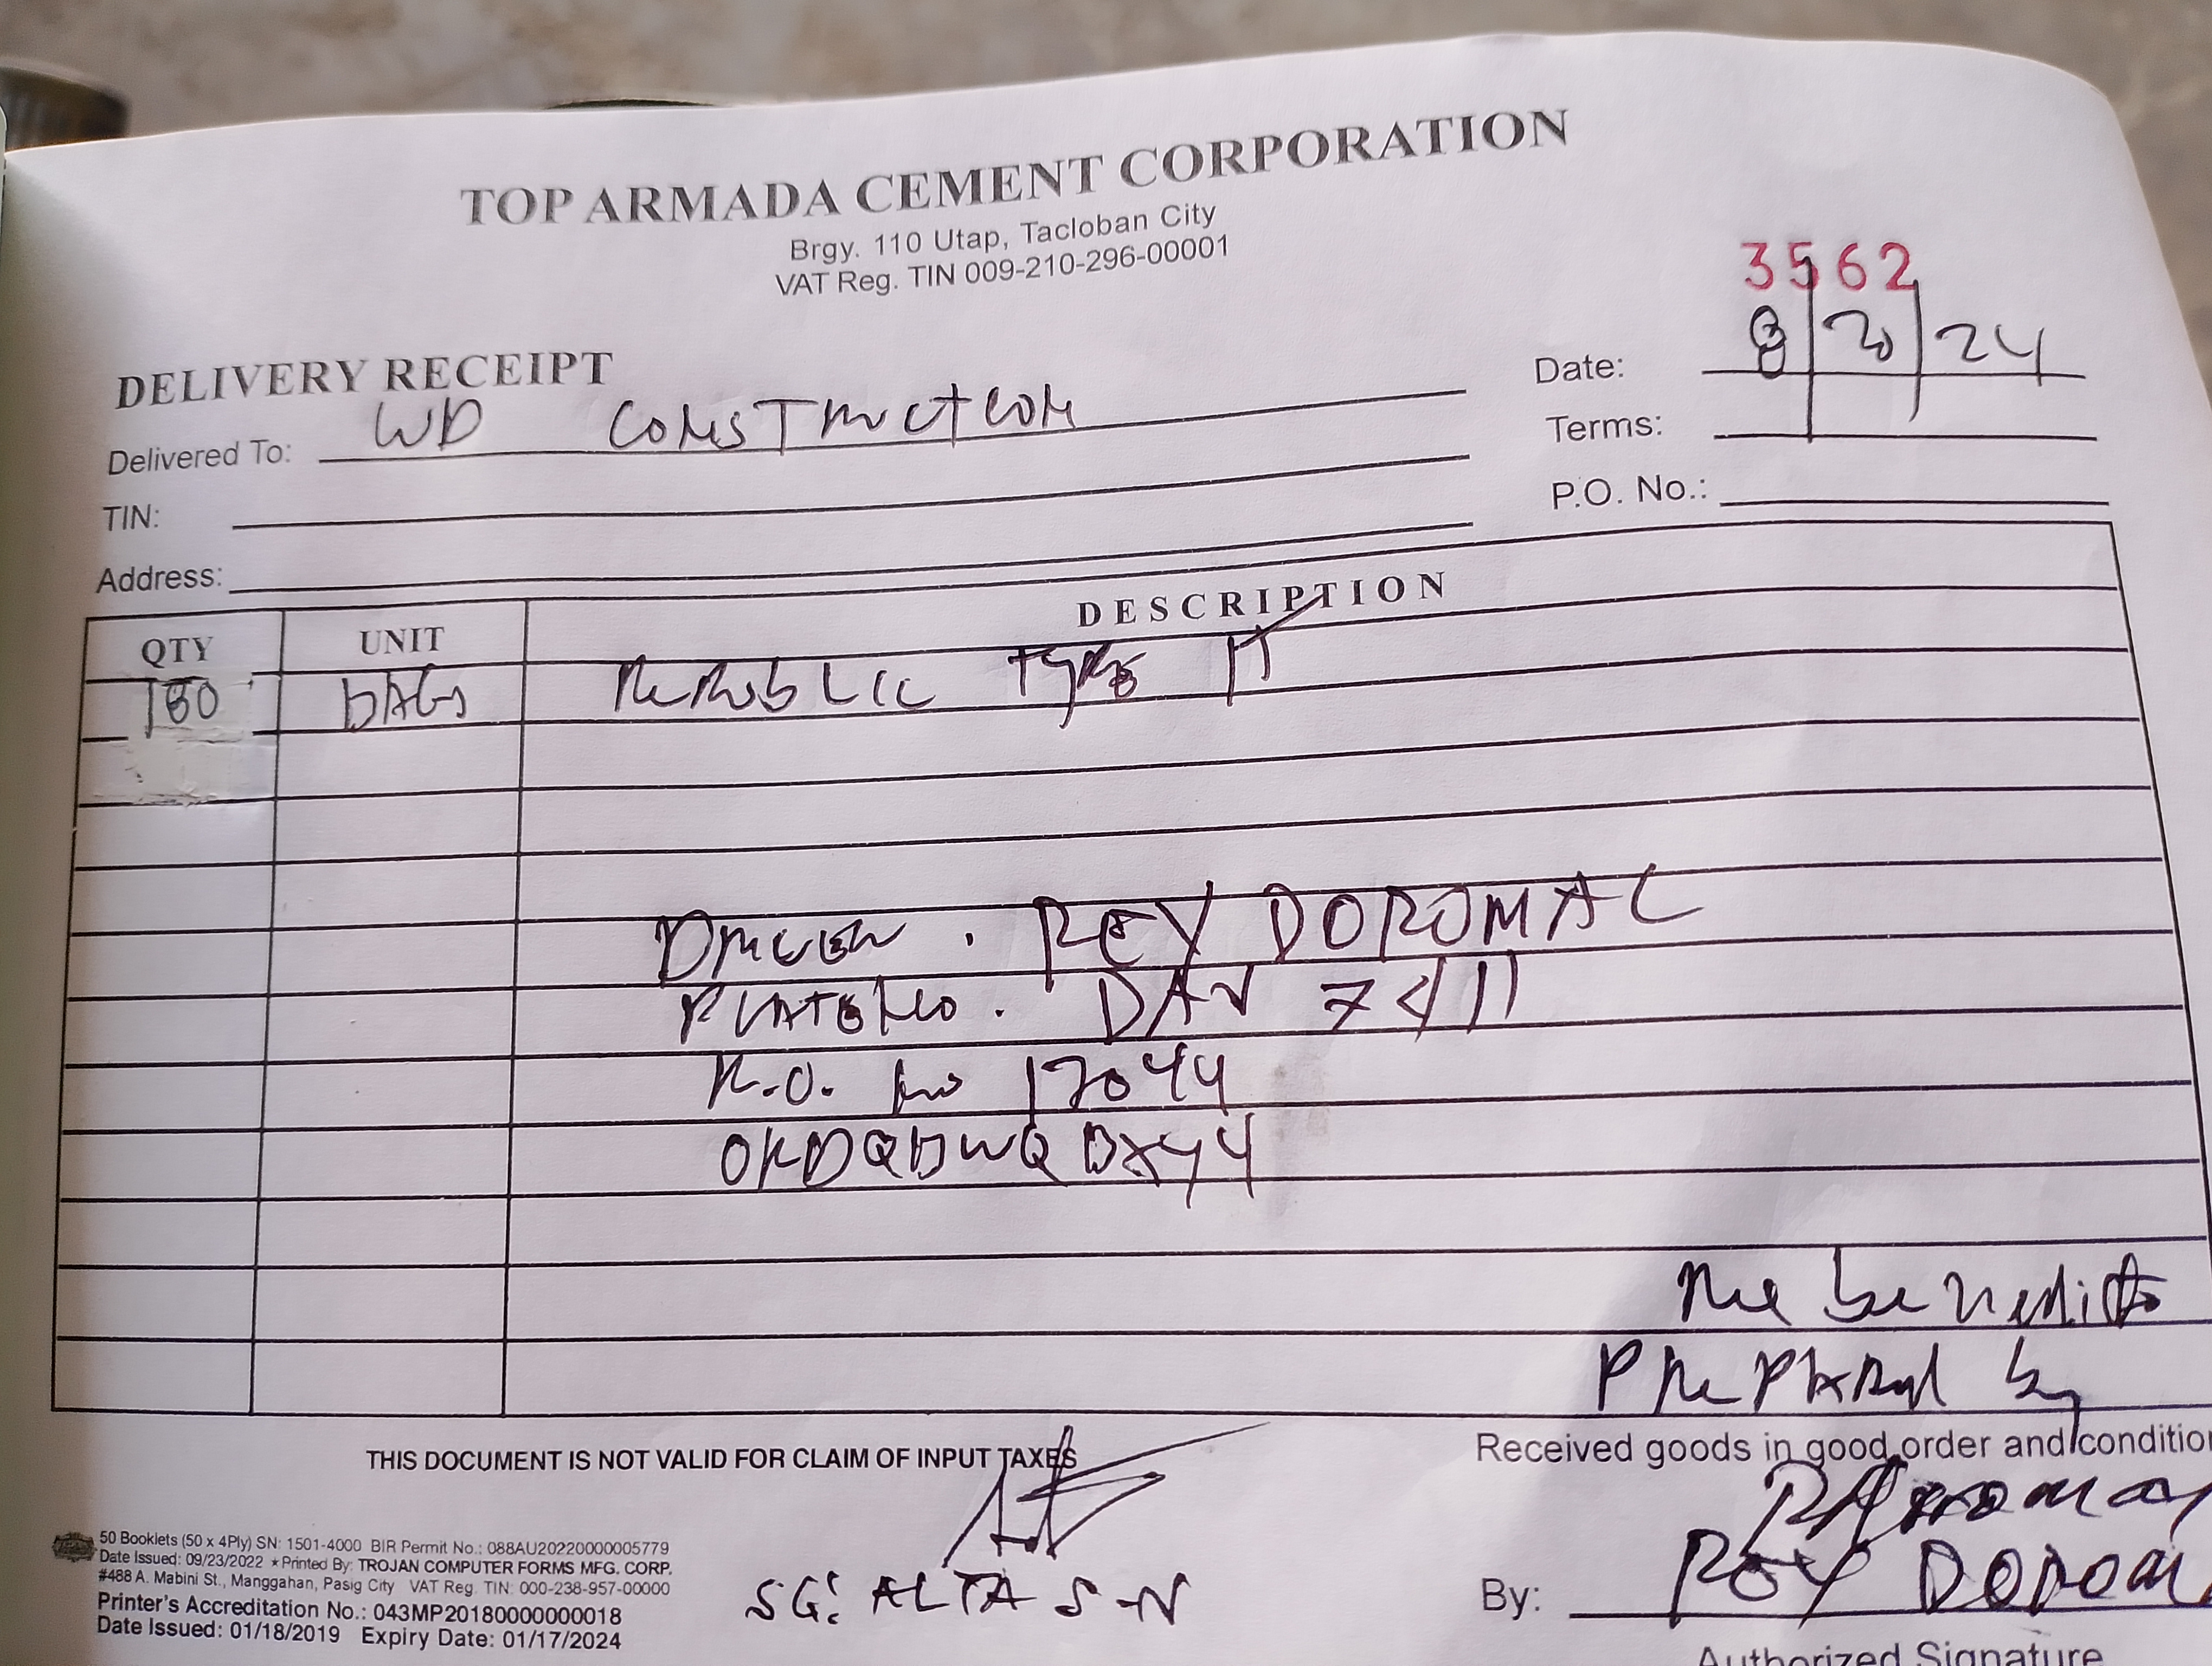 TOP ARMADA CEMENT CORPORATION
Brgy. 110 Utap, Tacloban City
VAT Reg. TIN 009-210-296-00001
3562
DELIVERY RECEIPT
Date: 8 | 20 | 24
Delivered To: WD CONSTRUCTION
Terms:
TIN:
P.O. No.:
Address:
QTY UNIT DESCRIPTION
180 BAGS REPUBLIC TYPE
DRIVER . REY DOROMAL
PLATE NO. 7411
P.O. no 17044
The benedicto
PREPARED by
THIS DOCUMENT IS NOT VALID FOR CLAIM OF INPUT TAXES
Received goods in good order and conditio
50 Booklets (50 x 4Ply) SN: 1501-4000 BIR Permit No.: 088AU20220000005779
Date Issued: 09/23/2022 ★Printed By: TROJAN COMPUTER FORMS MFG. CORP.
#488 A. Mabini St., Manggahan, Pasig City VAT Reg. TIN: 000-238-957-00000
Printer's Accreditation No.: 043MP20180000000018
Date Issued: 01/18/2019 Expiry Date: 01/17/2024
SG: ALTA S-N
By: REY DOROM
Authorized Signature